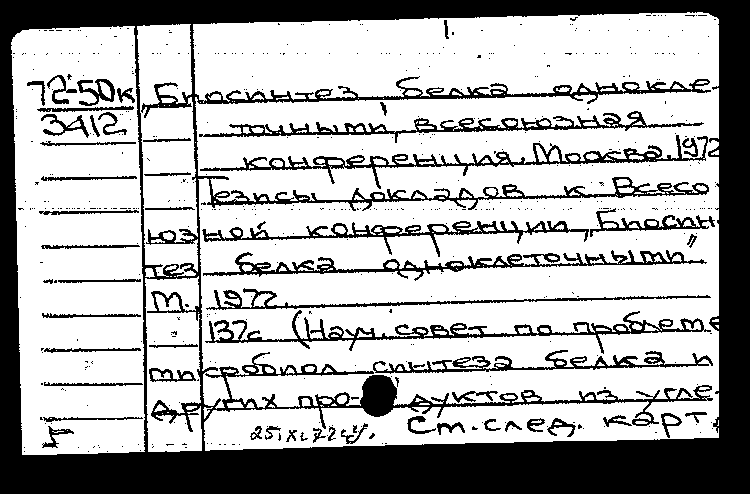 1.
72-50к „Биосинтез белка однокле-
3412 точными", всесоюзная
конференция. Москва. 1972
Тезисы докладов к Всесо-
юзной конференции „Биосин-
тез белка одноклеточными".
М., 1972.
137с (Науч. совет по проблеме
микробиол синтеза белка и
других про- дуктов из угле-
Б См. след. карт.